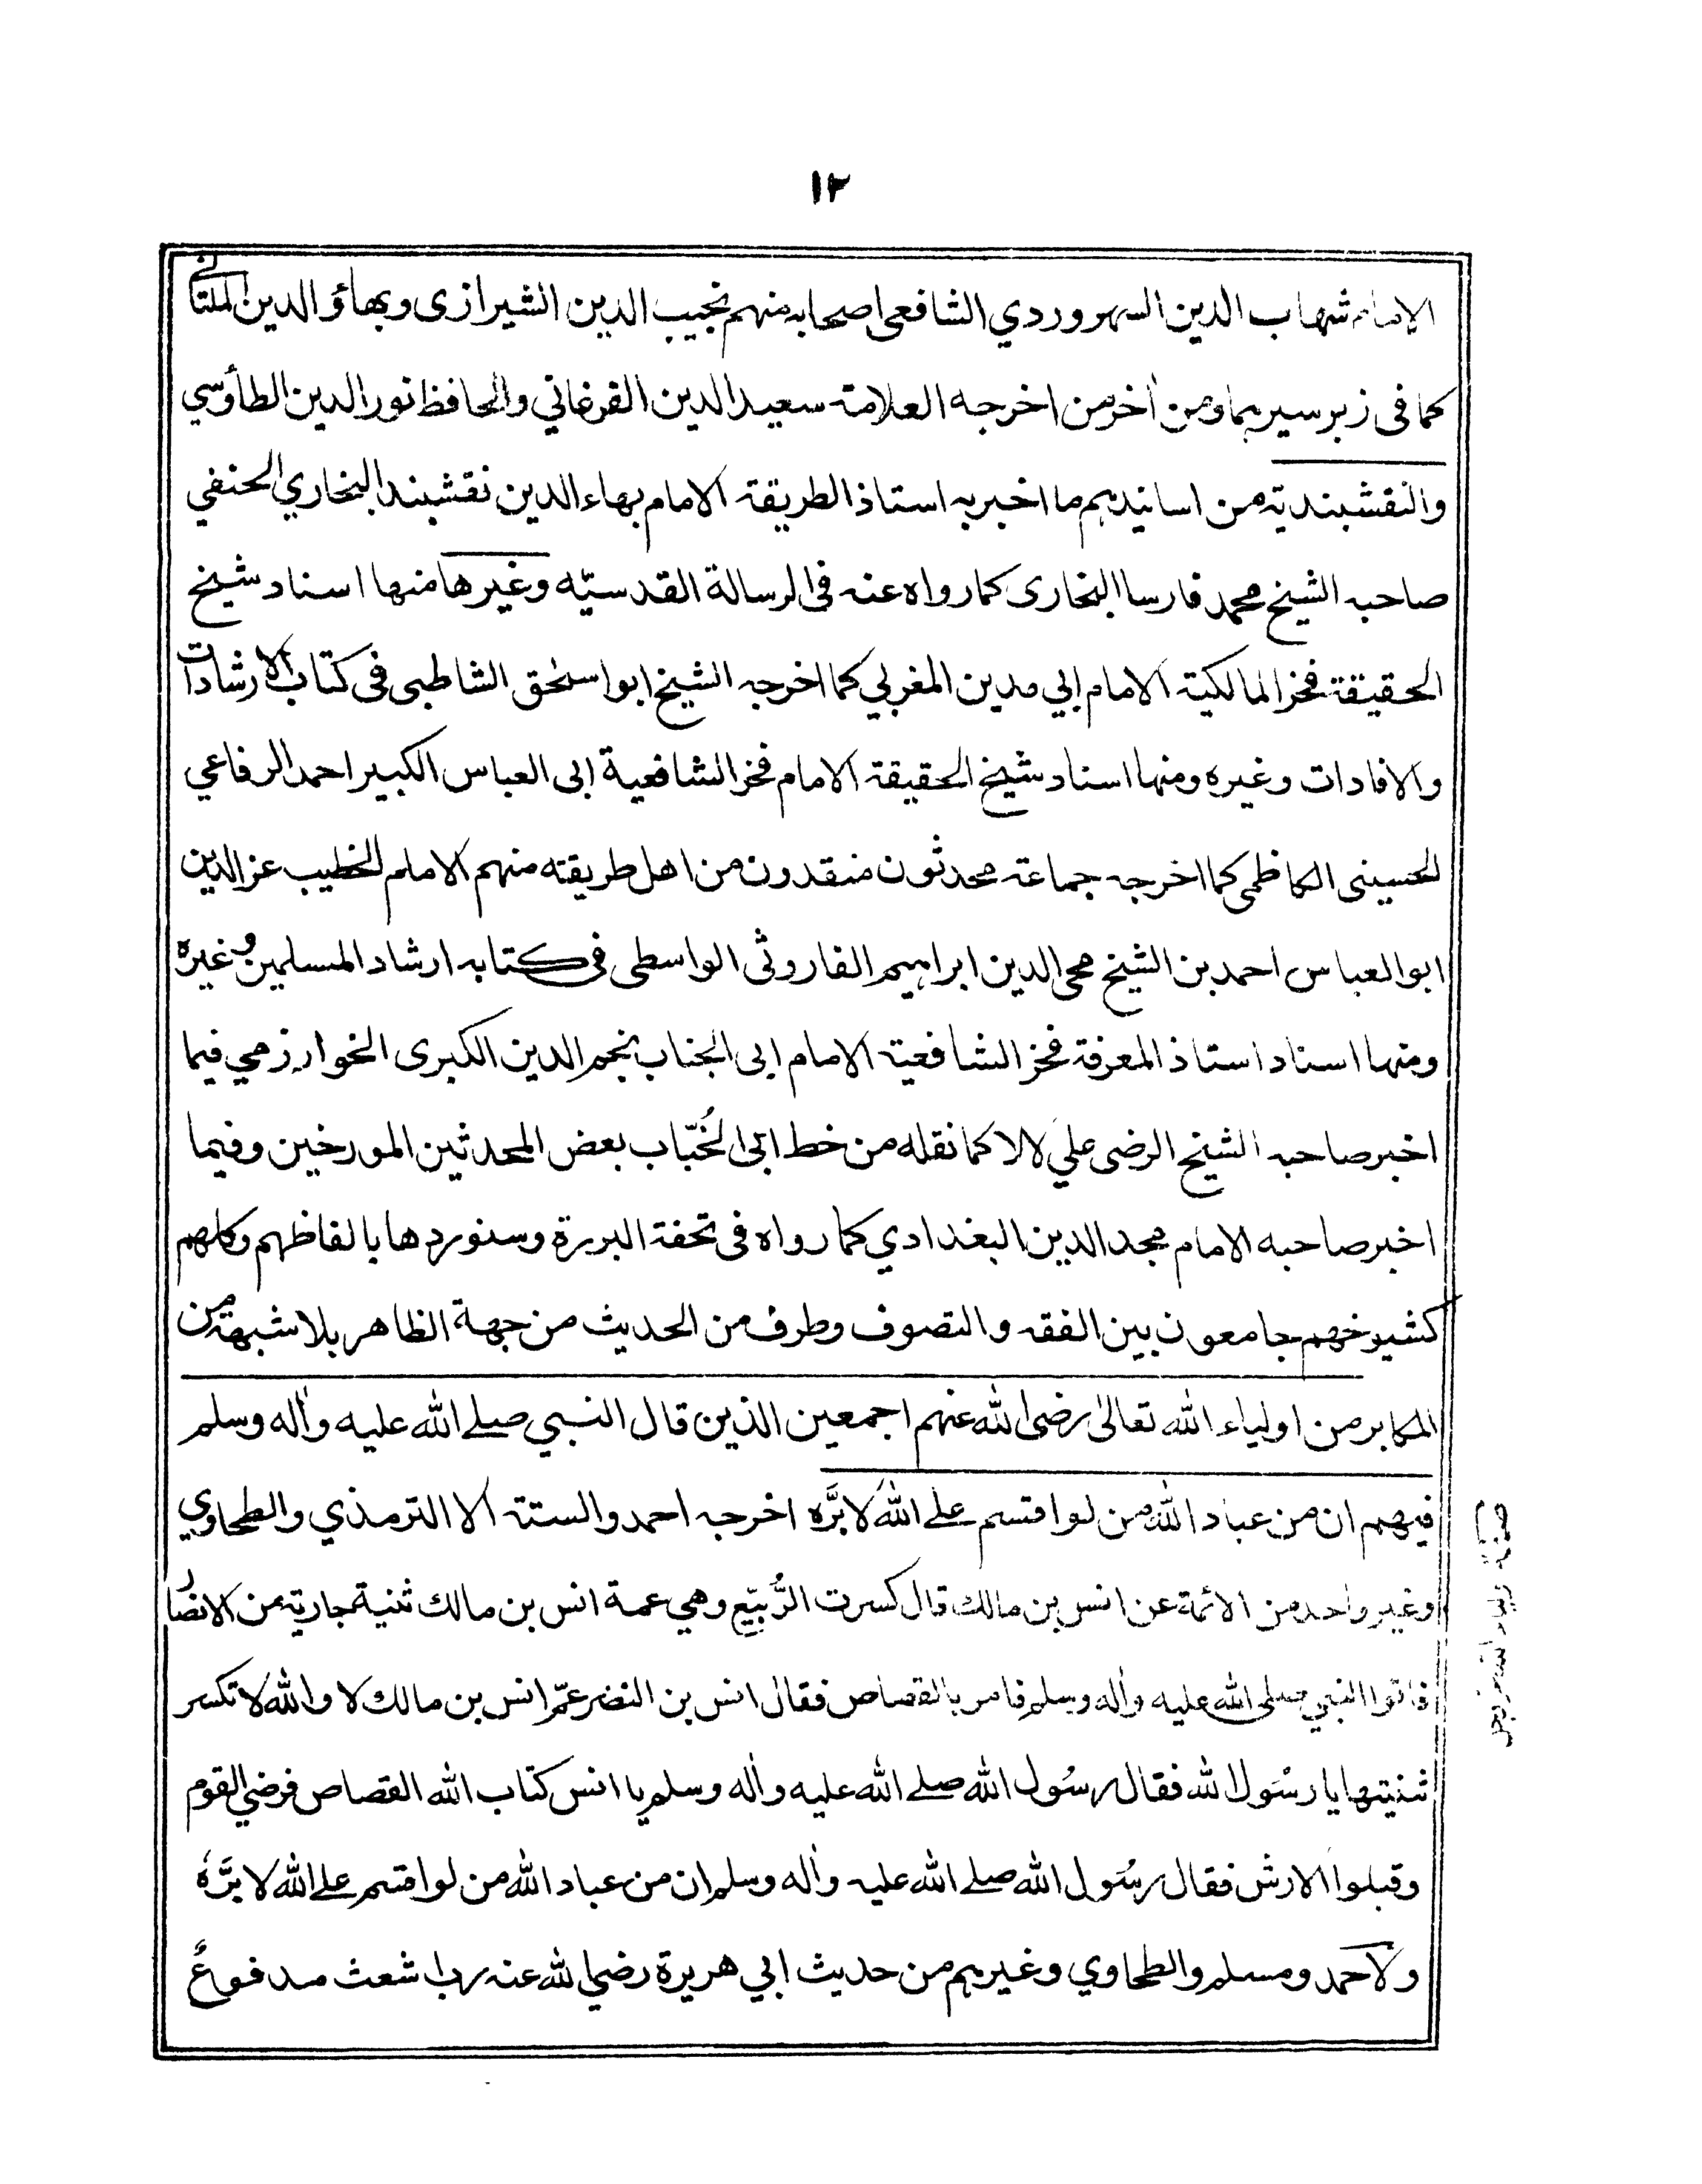 ١٢
الامام شهاب الدين السهروردي الشافعى اصحابه منهم نجيب الدين الشيرازى وبهاؤ الدين الملتانى
كما فى زبر سيرهما ومن اٰخر من اخرجه العلامة سعيد الدين الفرغاني والحافظ نور الدين الطاؤسي
والنقشبندية من اسانيدهم ما اخبر به استاذ الطريقة الامام بهاء الدين نقشبند البخاري الحنفي
صاحبه الشيخ محمد فارسا البخارى كما رواه عنه فى الرسالة القدسيّه وغيرها منها اسناد شيخ
الحقيقة فخر المالكية الامام ابي مدين المغربي كما اخرجه الشيخ ابو اسحٰق الشاطبى فى كتاب الارشادات
والافادات وغيره ومنها اسناد شيخ الحقيقة الامام فخر الشافعية ابى العباس الكبير احمد الرفاعي
الحسينى الكاظمى كما اخرجه جماعة محدثون منقدون من اهل طريقته منهم الامام الخطيب عز الدين
ابو العباس احمد بن الشيخ محى الدين ابراهيم الفاروثى الواسطى فى كتابه ارشاد المسلمين وغيره
ومنها اسناد استاذ المعرفة فخر الشافعية الامام ابى الجناب نجم الدين الكبرى الخوارزمي فيما
اخبر صاحبه الشيخ الرضى علي لالا كما نقله من خط ابى الخُبّاب بعض المحدثين المورخين وفيما
اخبر صاحبه الامام مجد الدين البغدادي كما رواه فى تحفة البررة وسنوردها بالفاظهم وكلهم
كشيوخهم جامعون بين الفقه والتصوف وطرف من الحديث من جهة الظاهر بلا شبهة من
المكابر من اولياء الله تعالىٰ رضى الله عنهم اجمعين الذين قال النبي صلے الله عليه واٰله وسلم
فيهم ان من عباد الله من لو اقسم علے الله لابرَّه اخرجه احمد والستة الا الترمذي والطحاوي
وغير واحد من الائمة عن انس بن مالك قال كسرت الرُّبَيّع وهي عمة انس بن مالك ثنية جارية من الانصار
فاتوا النبي صلى الله عليه واٰله وسلم فامر بالقصاص فقال انس بن النضر عمّ انس بن مالك لا والله لا تكسر
ثنيتها يا رسُول الله فقال رسُول الله صلے الله عليه واٰله وسلم يا انس كتاب الله القصاص فرضي القوم
وقبلوا الارش فقال رسُول الله صلے الله عليه واٰله وسلم ان من عباد الله من لو اقسم علے الله لابرَّهٗ
ولاحمد ومسلم والطحاوي وغيرهم من حديث ابي هريرة رضي الله عنه رب اشعث مدفوعٌ